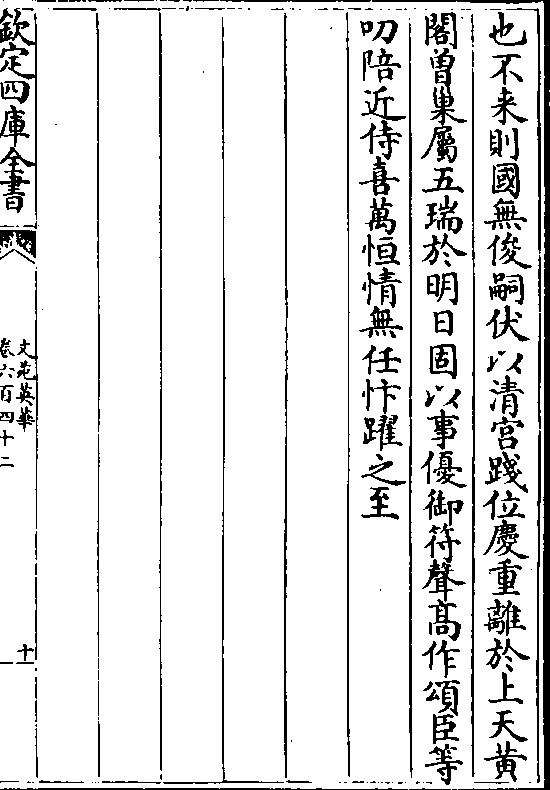 也不来則國無俊嗣伏以清宮踐位慶重離於上天黄
閣曾巢屬五瑞於明日固以事優御符聲髙作頌臣等
叨陪近侍喜萬恒情無任忭躍之至
欽定四庫全書
文苑英華
卷六百四十二
十